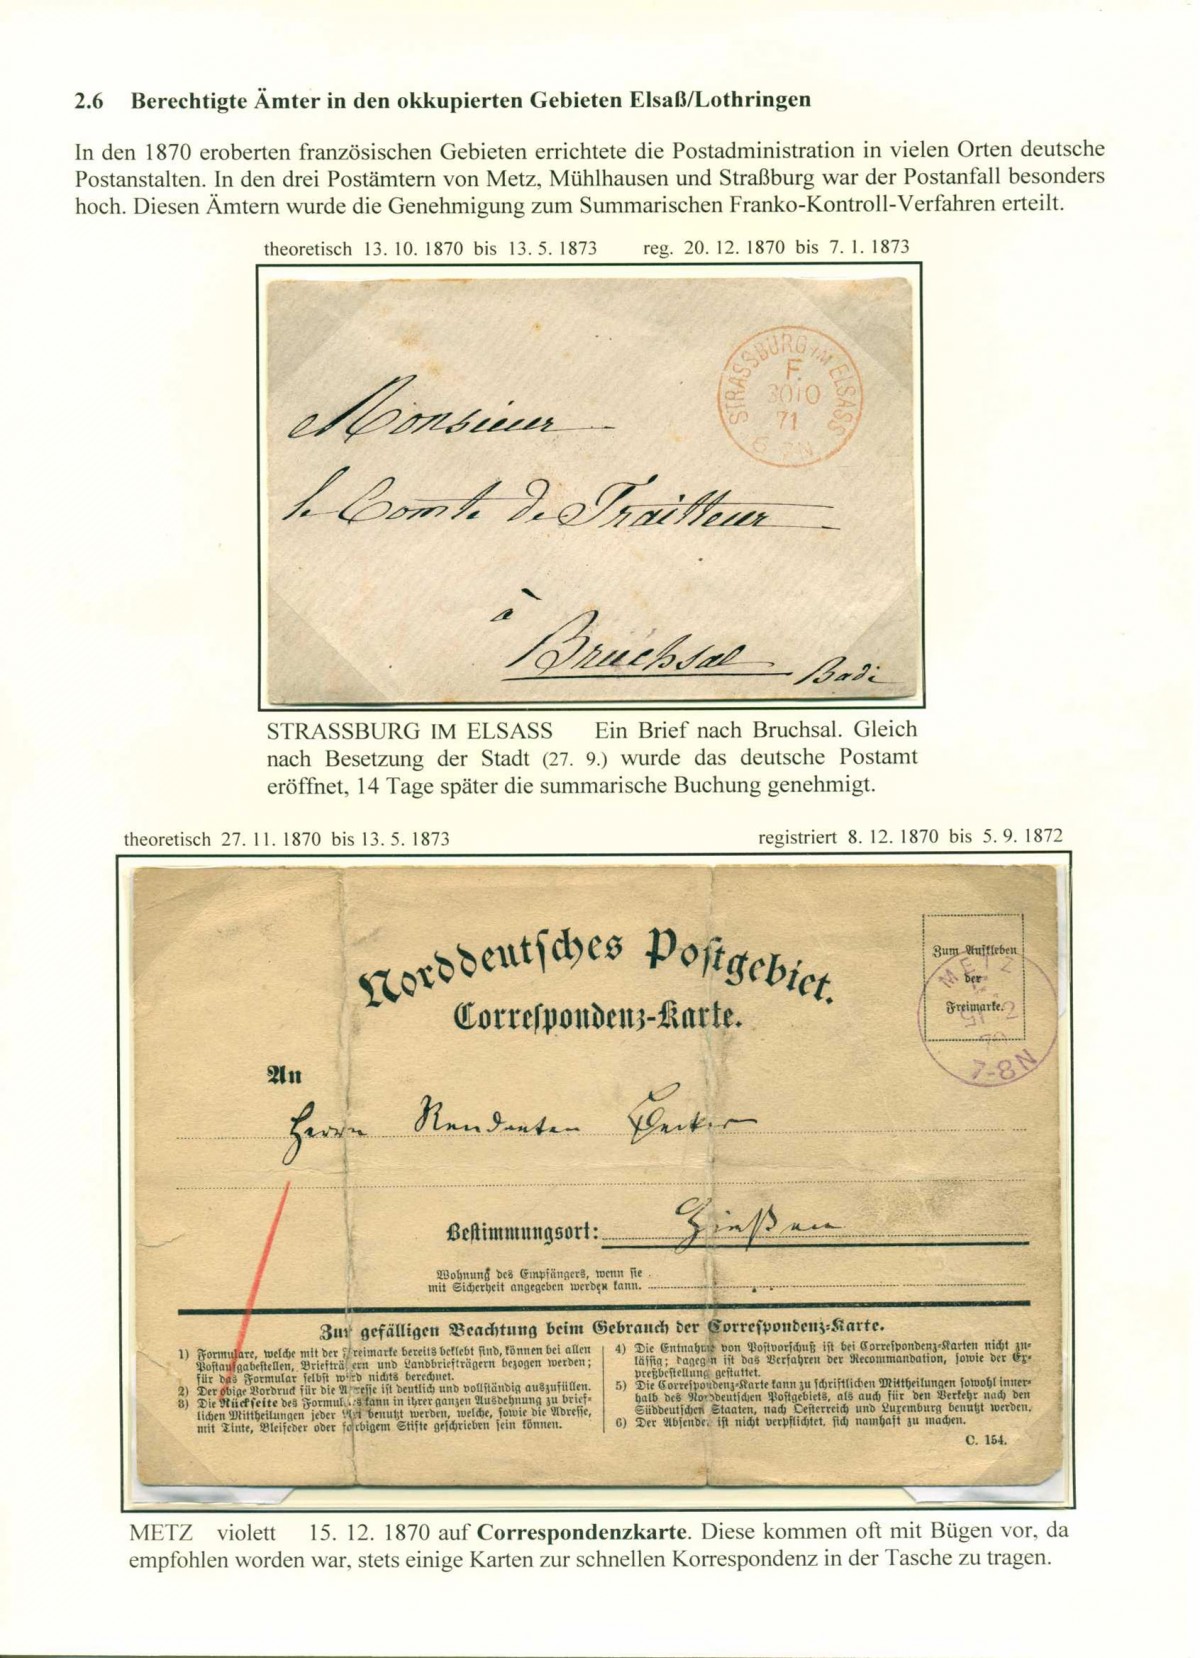 2.6 Berechtigte Ämter in den okkupierten Gebieten Elsaß/Lothringen
In den 1870 eroberten französischen Gebieten errichtete die Postadministration in vielen Orten deutsche
Postanstalten. In den drei Postämtern von Metz, Mühlhausen und Straßburg war der Postanfall besonders
hoch. Diesen Ämtern wurde die Genehmigung zum Summarischen Franko-Kontroll-Verfahren erteilt.
theoretisch 13. 10. 1870 bis 13. 5. 1873 reg. 20. 12. 1870 bis 7. 1. 1873
STRASSBURG IM ELSASS
F.
3010
71
6-7N
Monsieur
le Comte de Traitteur
à
Bruchsal
Bade
STRASSBURG IM ELSASS Ein Brief nach Bruchsal. Gleich
nach Besetzung der Stadt (27. 9.) wurde das deutsche Postamt
eröffnet, 14 Tage später die summarische Buchung genehmigt.
theoretisch 27. 11. 1870 bis 13. 5. 1873 registriert 8. 12. 1870 bis 5. 9. 1872
Norddeutsches Postgebiet.
Correspondenz-Karte.
Zum Aufkleben
der
Freimarke.
METZ
7-8N
An
Herrn Rendanten
Bestimmungsort: Gießen
Wohnung des Empfängers, wenn sie
mit Sicherheit angegeben werden kann.
Zur gefälligen Beachtung beim Gebrauch der Correspondenz-Karte.
1) Formulare, welche mit der Freimarke bereits beklebt sind, können bei allen
Postausgabestellen, Briefträgern und Landbriefträgern bezogen werden;
für das Formular selbst wird nichts berechnet.
2) Der obige Vordruck für die Adresse ist deutlich und vollständig auszufüllen.
3) Die Rückseite des Formulares kann in ihrer ganzen Ausdehnung zu brief-
lichen Mittheilungen jeder Art benutzt werden, welche, sowie die Adresse,
mit Tinte, Bleifeder oder farbigem Stifte geschrieben sein können.
4) Die Entnahme von Postvorschuß ist bei Correspondenz-Karten nicht zu-
lässig; dagegen ist das Verfahren der Recommandation, sowie der Ex-
preßbestellung gestattet.
5) Die Correspondenz-Karte kann zu schriftlichen Mittheilungen sowohl inner-
halb des Norddeutschen Postgebiets, als auch für den Verkehr nach den
Süddeutschen Staaten, nach Oesterreich und Luxemburg benutzt werden.
6) Der Absender ist nicht verpflichtet, sich namhaft zu machen.
C. 154.
METZ violett 15. 12. 1870 auf Correspondenzkarte. Diese kommen oft mit Bügen vor, da
empfohlen worden war, stets einige Karten zur schnellen Korrespondenz in der Tasche zu tragen.